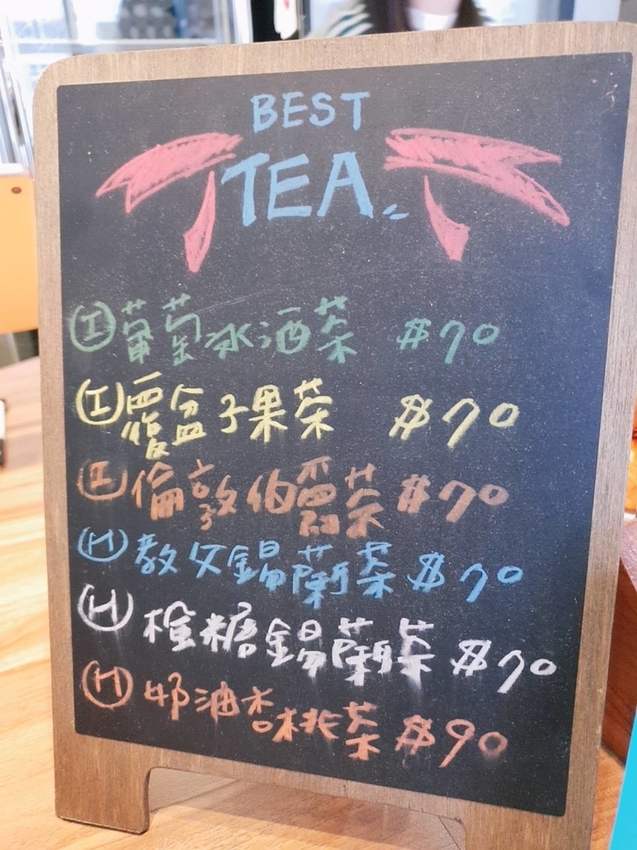 BEST
TEA
Ⓘ葡萄冰酒茶 $70
Ⓘ覆盆子果茶 $70
Ⓘ倫敦伯爵茶 $70
Ⓗ教父錫蘭茶 $70
Ⓗ糖錫蘭茶 $70
Ⓗ奶油杏桃茶 $90